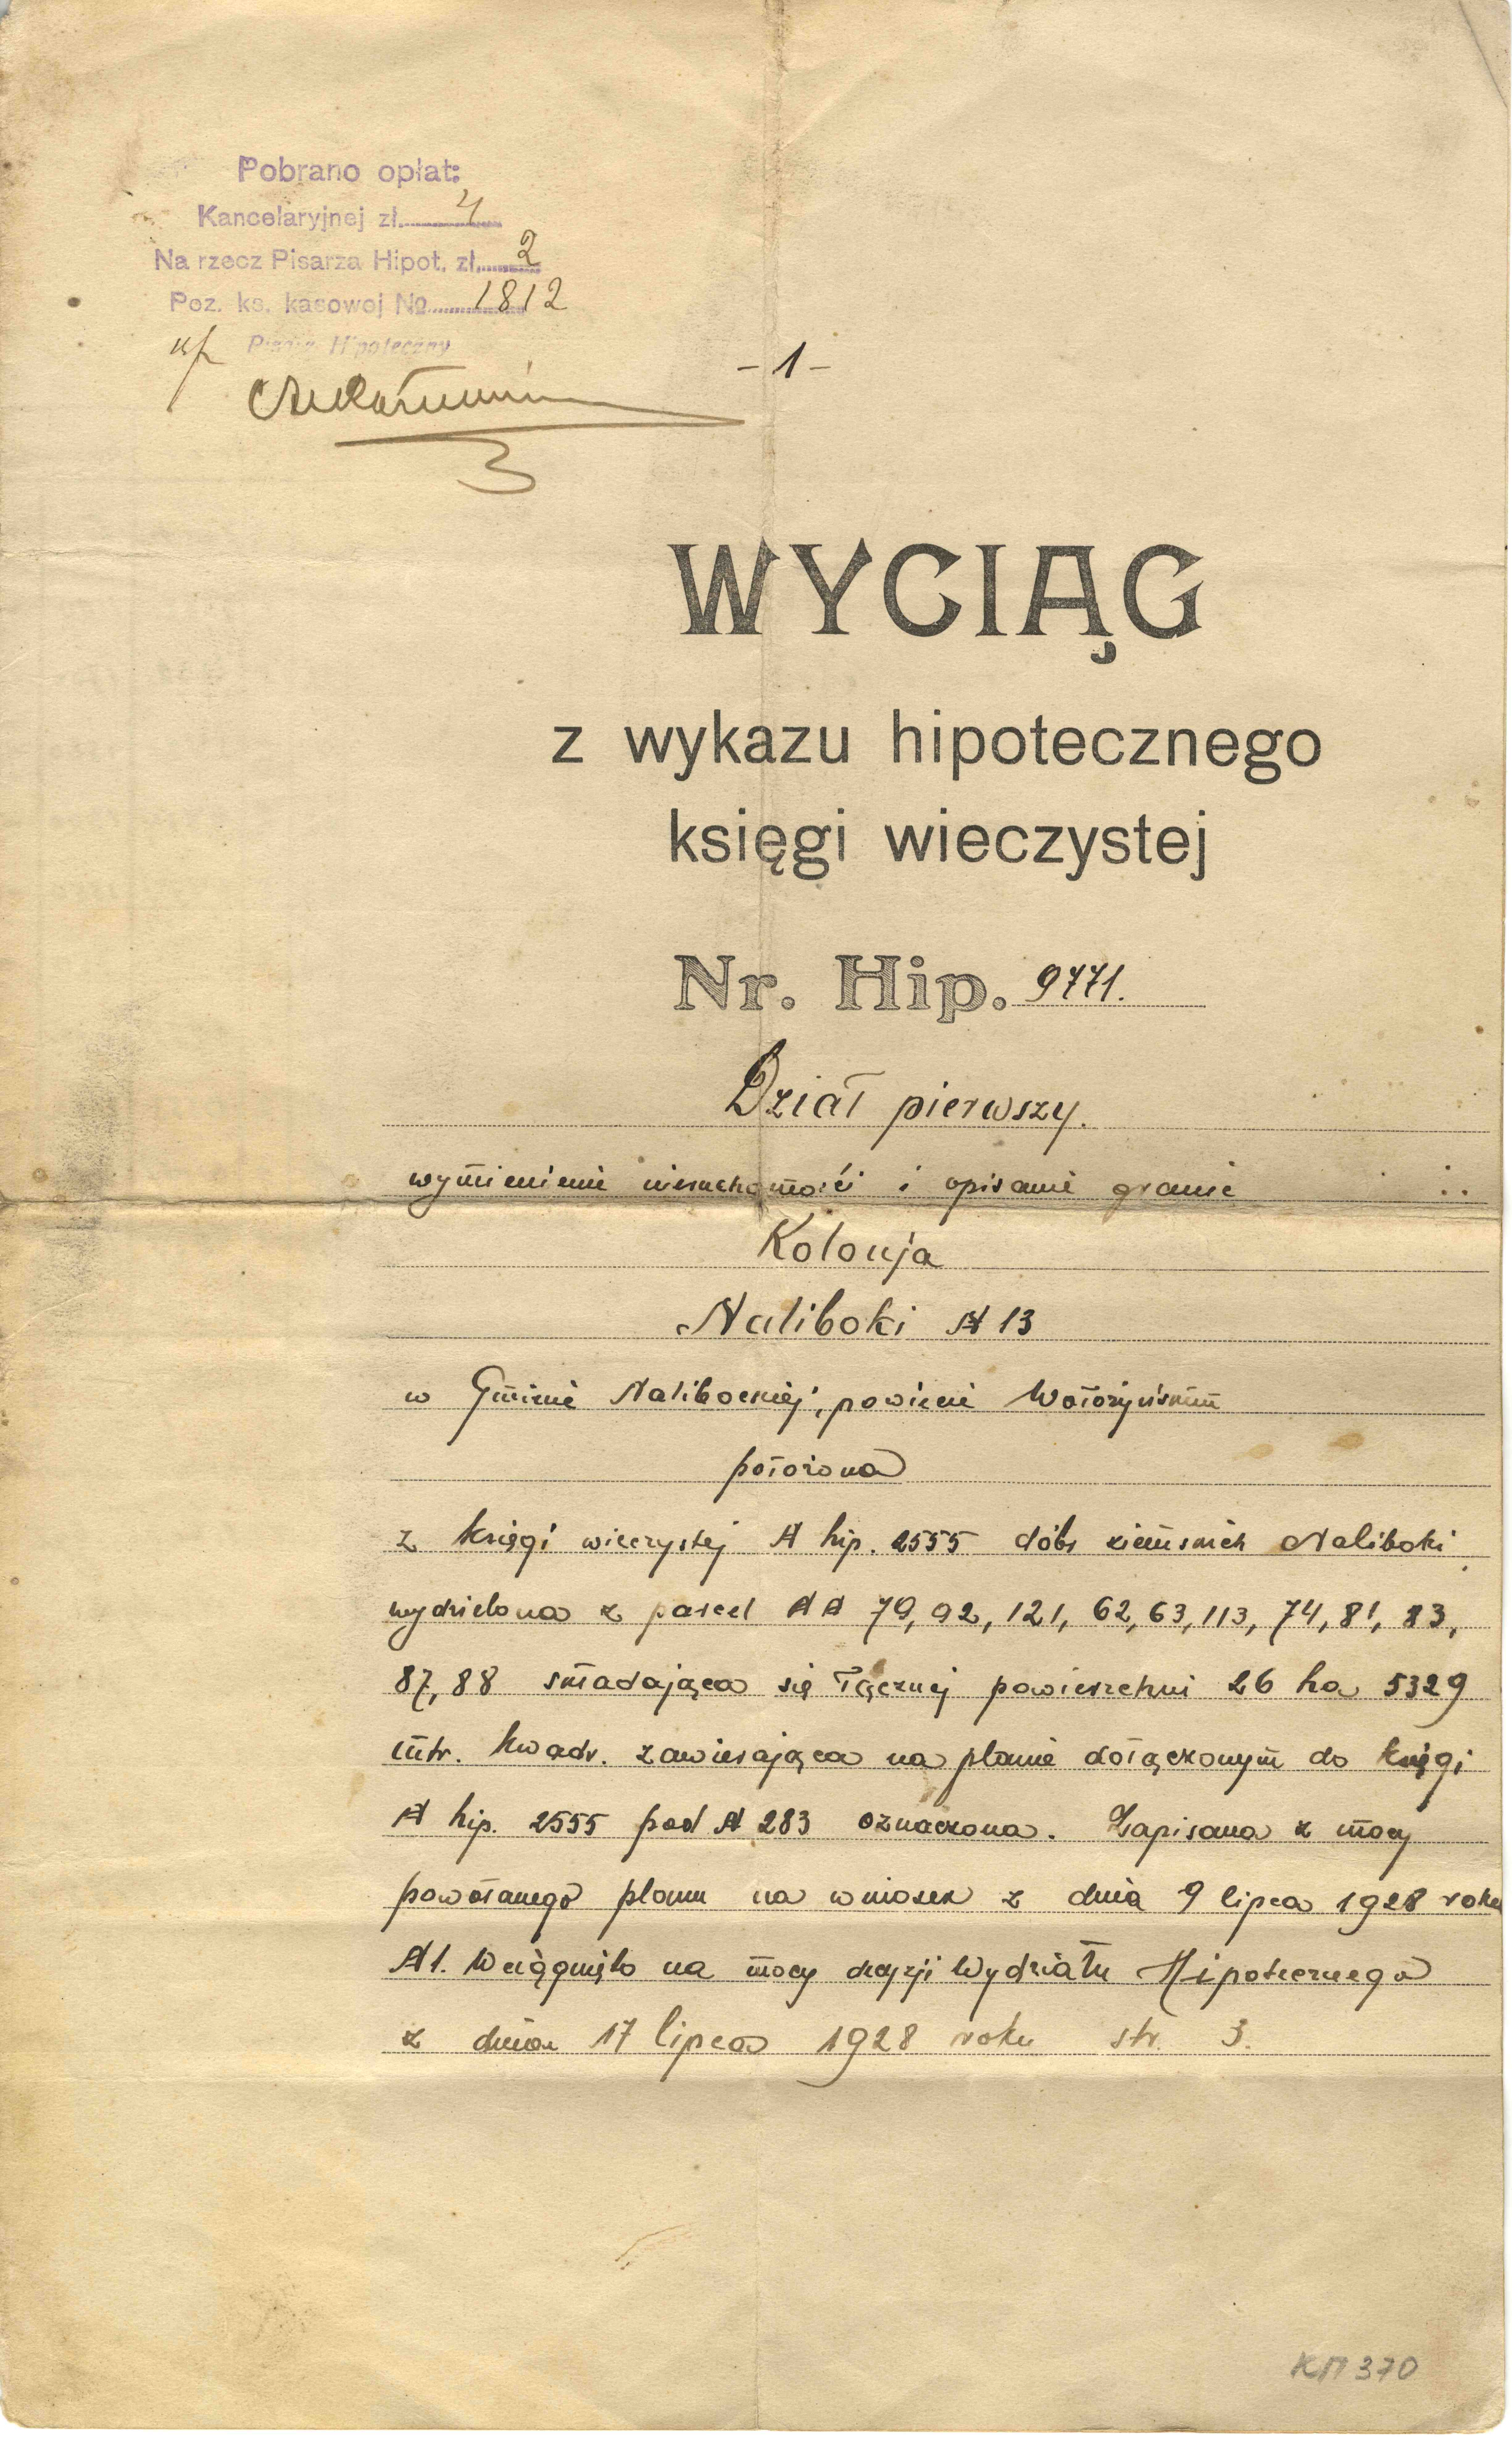 Pobrano opłat:
Kancelaryjnej zł. 4
Na rzecz Pisarza Hipot. zł. 2
Poz. ks. kasowej № 1812
Pisarz Hipoteczny
- 1 -
WYCIĄG
z wykazu hipotecznego
księgi wieczystej
Nr. Hip. 9771.
Dział pierwszy.
wymienienie nieruchomości i opisanie granic
Kolonja
Naliboki № 13
w Gminie Nalibockiej, powiecie Wołożyńskim
położona
z księgi wieczystej № hip. 2555 dóbr ziemskich Naliboki
wydzielona z parcel №№ 79, 92, 121, 62, 63, 113, 74, 81, 83,
87, 88 składająca się łącznej powierzchni 26 ha 5329
mtr. kwadr. zawierająca na planie dołączonym do księgi
№ hip. 2555 pod № 283 oznaczona. Zapisana z mocy
powołanego planu na wniosek z dnia 9 lipca 1928 roku
№ 1. Wciągnięto na mocy decyzji Wydziału Hipotecznego
z dnia 17 lipca 1928 roku str. 3.
КП 370